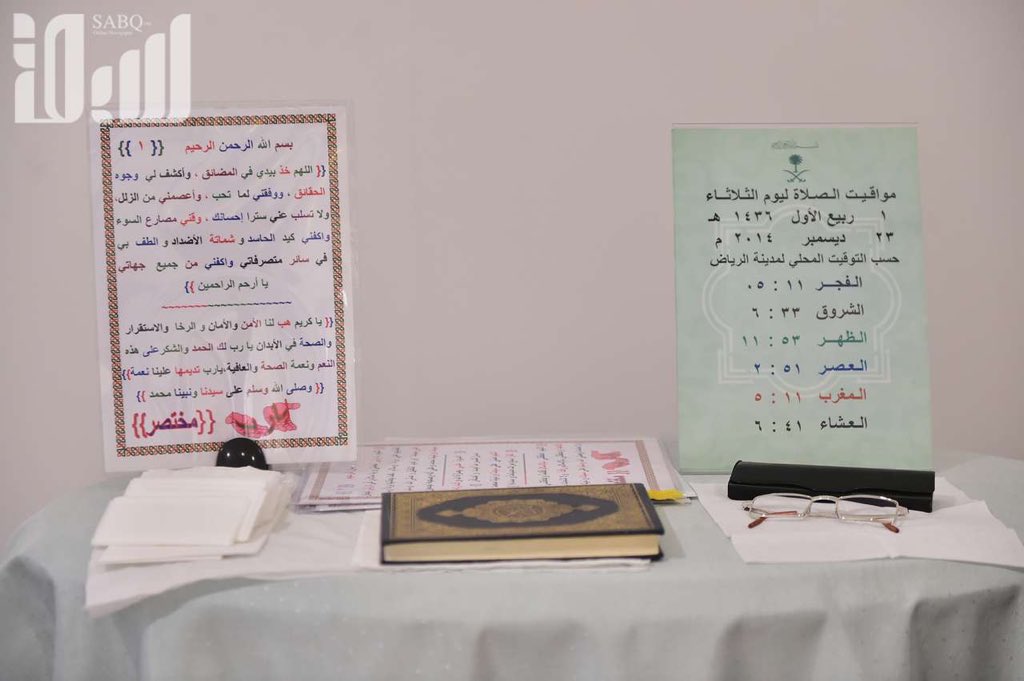 SABQ
Online Newspaper
سبق
بسم الله الرحمن الرحيم {{ ١ }}
{{ اللهم خذ بيدي في المضائق ، وأكشف لي وجوه
الحقائق ، ووفقني لما تحب ، وأعصمني من الزلل،
ولا تسلب عني سترا إحسانك ، وقني مصارع السوء
واكفني كيد الحاسد و شماتة الأضداد و الطف بي
في سائر متصرفاتي واكفني من جميع جهاتي
يا أرحم الراحمين }}
{{ يا كريم هب لنا الأمن والأمان و الرخا والاستقرار
والصحة في الأبدان يا رب لك الحمد والشكر على هذه
النعم ونعمة الصحة والعافية،يارب تديمها علينا نعمة}}
{{ وصلى الله وسلم على سيدنا ونبينا محمد }}
{{مختصر}}
مواقيت الصلاة ليوم الثلاثاء
١ ربيع الأول ١٤٣٦ هـ
٢٣ ديسمبر ٢٠١٤ م
حسب التوقيت المحلي لمدينة الرياض
الفجر ١١ : ٠٥
الشروق ٣٣ : ٦
الظهر ٥٣ : ١١
العصر ٥١ : ٢
المغرب ١١ : ٥
العشاء ٤١ : ٦